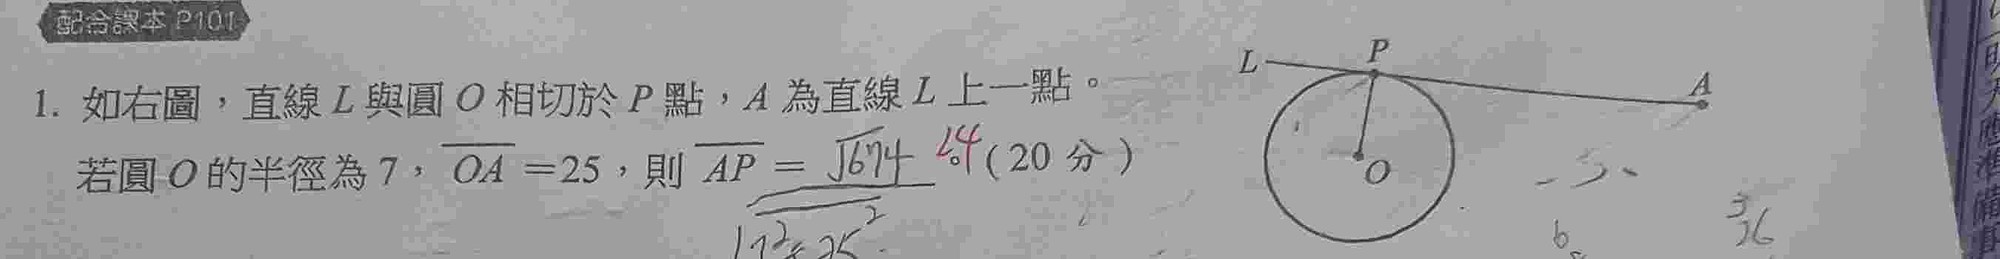 配合課本 P101
1. 如右圖，直線 L 與圓 O 相切於 P 點，A 為直線 L 上一點。
若圓 O 的半徑為 7，OA =25，則 AP = √674 24 (20 分)
L
P
A
O
36